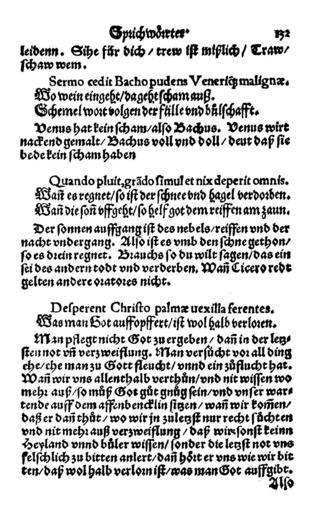 Sprichwörter. 132
leidenn. Sihe für dich / trew ist mißlich / Traw /
schaw wem.
Sermo cedit Bacho pudens Venericꝫ malignæ.
Wo wein eingeht / da geht scham auß.
Schemel wort volgen der fülle vnd bülschafft.
Venus hat kein scham / also Bachus. Venus wirt
nackend gemalt / Bachus voll vnd doll / deut daß sie
bede kein scham haben
Quando pluit, grādo simul et nix deperit omnis.
Wañ es regnet / so ist der schnee vnd hagel verdorben.
Wañ die soñ vffgeht / so helf got dem reiffen am zaun.
Der sonnen auffgang ist des nebels / reiffen vnd der
nacht vndergang. Also ist es vmb den schne gethon /
so es drein regnet. Brauchs so du wilt sagen / das ein
sei des andern todt vnd verderben. Wañ Cicero redt
gelten andere oratores nicht.
Desperent Christo palmæ uexilla ferentes.
Was man Got auffopffert / ist wol halb verloren.
Man pflegt nicht Got zu ergeben / dañ in der letz-
sten not vñ verzweiflung. Man versücht vor all ding
ehe / ehe man zu Gott fleucht / vnnd ein züflucht hat.
Wañ wir vns allenthalb verthůn / vnd nit wissen wo
mehr auß / so můß Got gůt gnůg sein / vnd vnser war-
tende auff dem affenbencklin sitzen / wañ wir kom̃en /
daß er dañ thůt / wo wir jn zuletzst nur recht süchten
vnd nit mehr auß verzweiflung / daß wir sonst keinn
Heyland vnnd büler wissen / sonder die letzst not vns
felschlich zu bitten anlert / dañ hört er vns wie wir bit
ten / daß wol halb verlorn ist / was man Got auffgibt.
Also